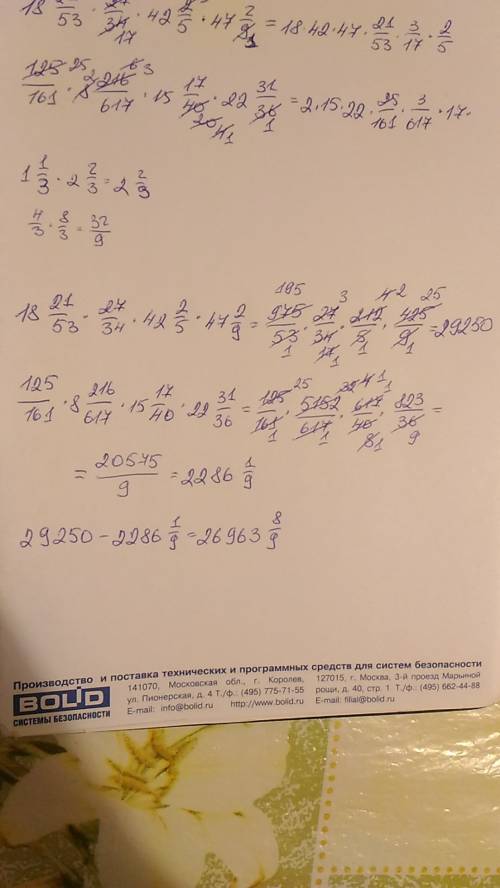 18 21/53 · 27/34 17 · 42 2/5 · 47 2/9 1 = 18·42·47· 21/53 · 3/17 · 2/5
125 25/161 · 8 2 216 3/617 · 15 17/40 20 · 22 31/36 1 = 2·15·22· 25/161 · 3/617 · 17·
1 1/3 · 2 2/3 = 2 2/9
4/3 · 8/3 = 32/9
18 21/53 · 27/34 · 42 2/5 · 47 2/9 = 975 195/53 1 · 27 3/34 17 1 · 212 4 2/5 1 · 425 25/9 1 = 29250
125/161 · 8 216/617 · 15 17/40 · 22 31/36 = 125 25/161 1 · 5152 32 4 1/617 1 · 617 1/40 8 1 · 823/36 9 =
= 20575/9 = 2286 1/9
29250 - 2286 1/9 = 26963 8/9
Производство и поставка технических и программных средств для систем безопасности
BOLID
СИСТЕМЫ БЕЗОПАСНОСТИ
141070, Московская обл., г. Королев,
ул. Пионерская, д. 4 Т./ф.: (495) 775-71-55
E-mail: info@bolid.ru http://www.bolid.ru
127015, г. Москва, 3-й проезд Марьиной
рощи, д. 40, стр. 1 Т./ф.: (495) 662-44-88
E-mail: filial@bolid.ru